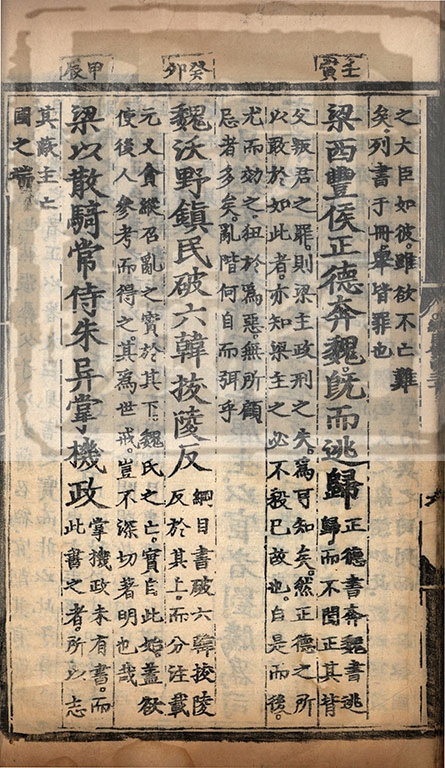 壬寅
之大臣如彼。雖欲不亡難
矣。列書于冊。舉皆罪也
梁西豐侯正德奔魏。旣而逃歸
正德書奔魏書逃
歸而不問正其背
父叛君之罪。則梁主政刑之失。爲可知矣。然正德之所
以敢於如此者。亦知梁主之必不殺已故也。自是而後。
尤而効之。狃於爲惡。無所顧
忌者多矣。亂階何自而弭乎
癸卯
魏沃野鎭民破六韓拔陵反
綱目書破六韓拔陵
反於其上。而分注載
元乂貪縱召亂之實於其下。魏氏之亡。實自此始。蓋欲
使後人參考而得之。其爲世戒。豈不深切著明也哉
甲辰
梁以散騎常侍朱异掌機政
掌機政未有書。而
此書之者。所以志
其蔽主亡
國之端